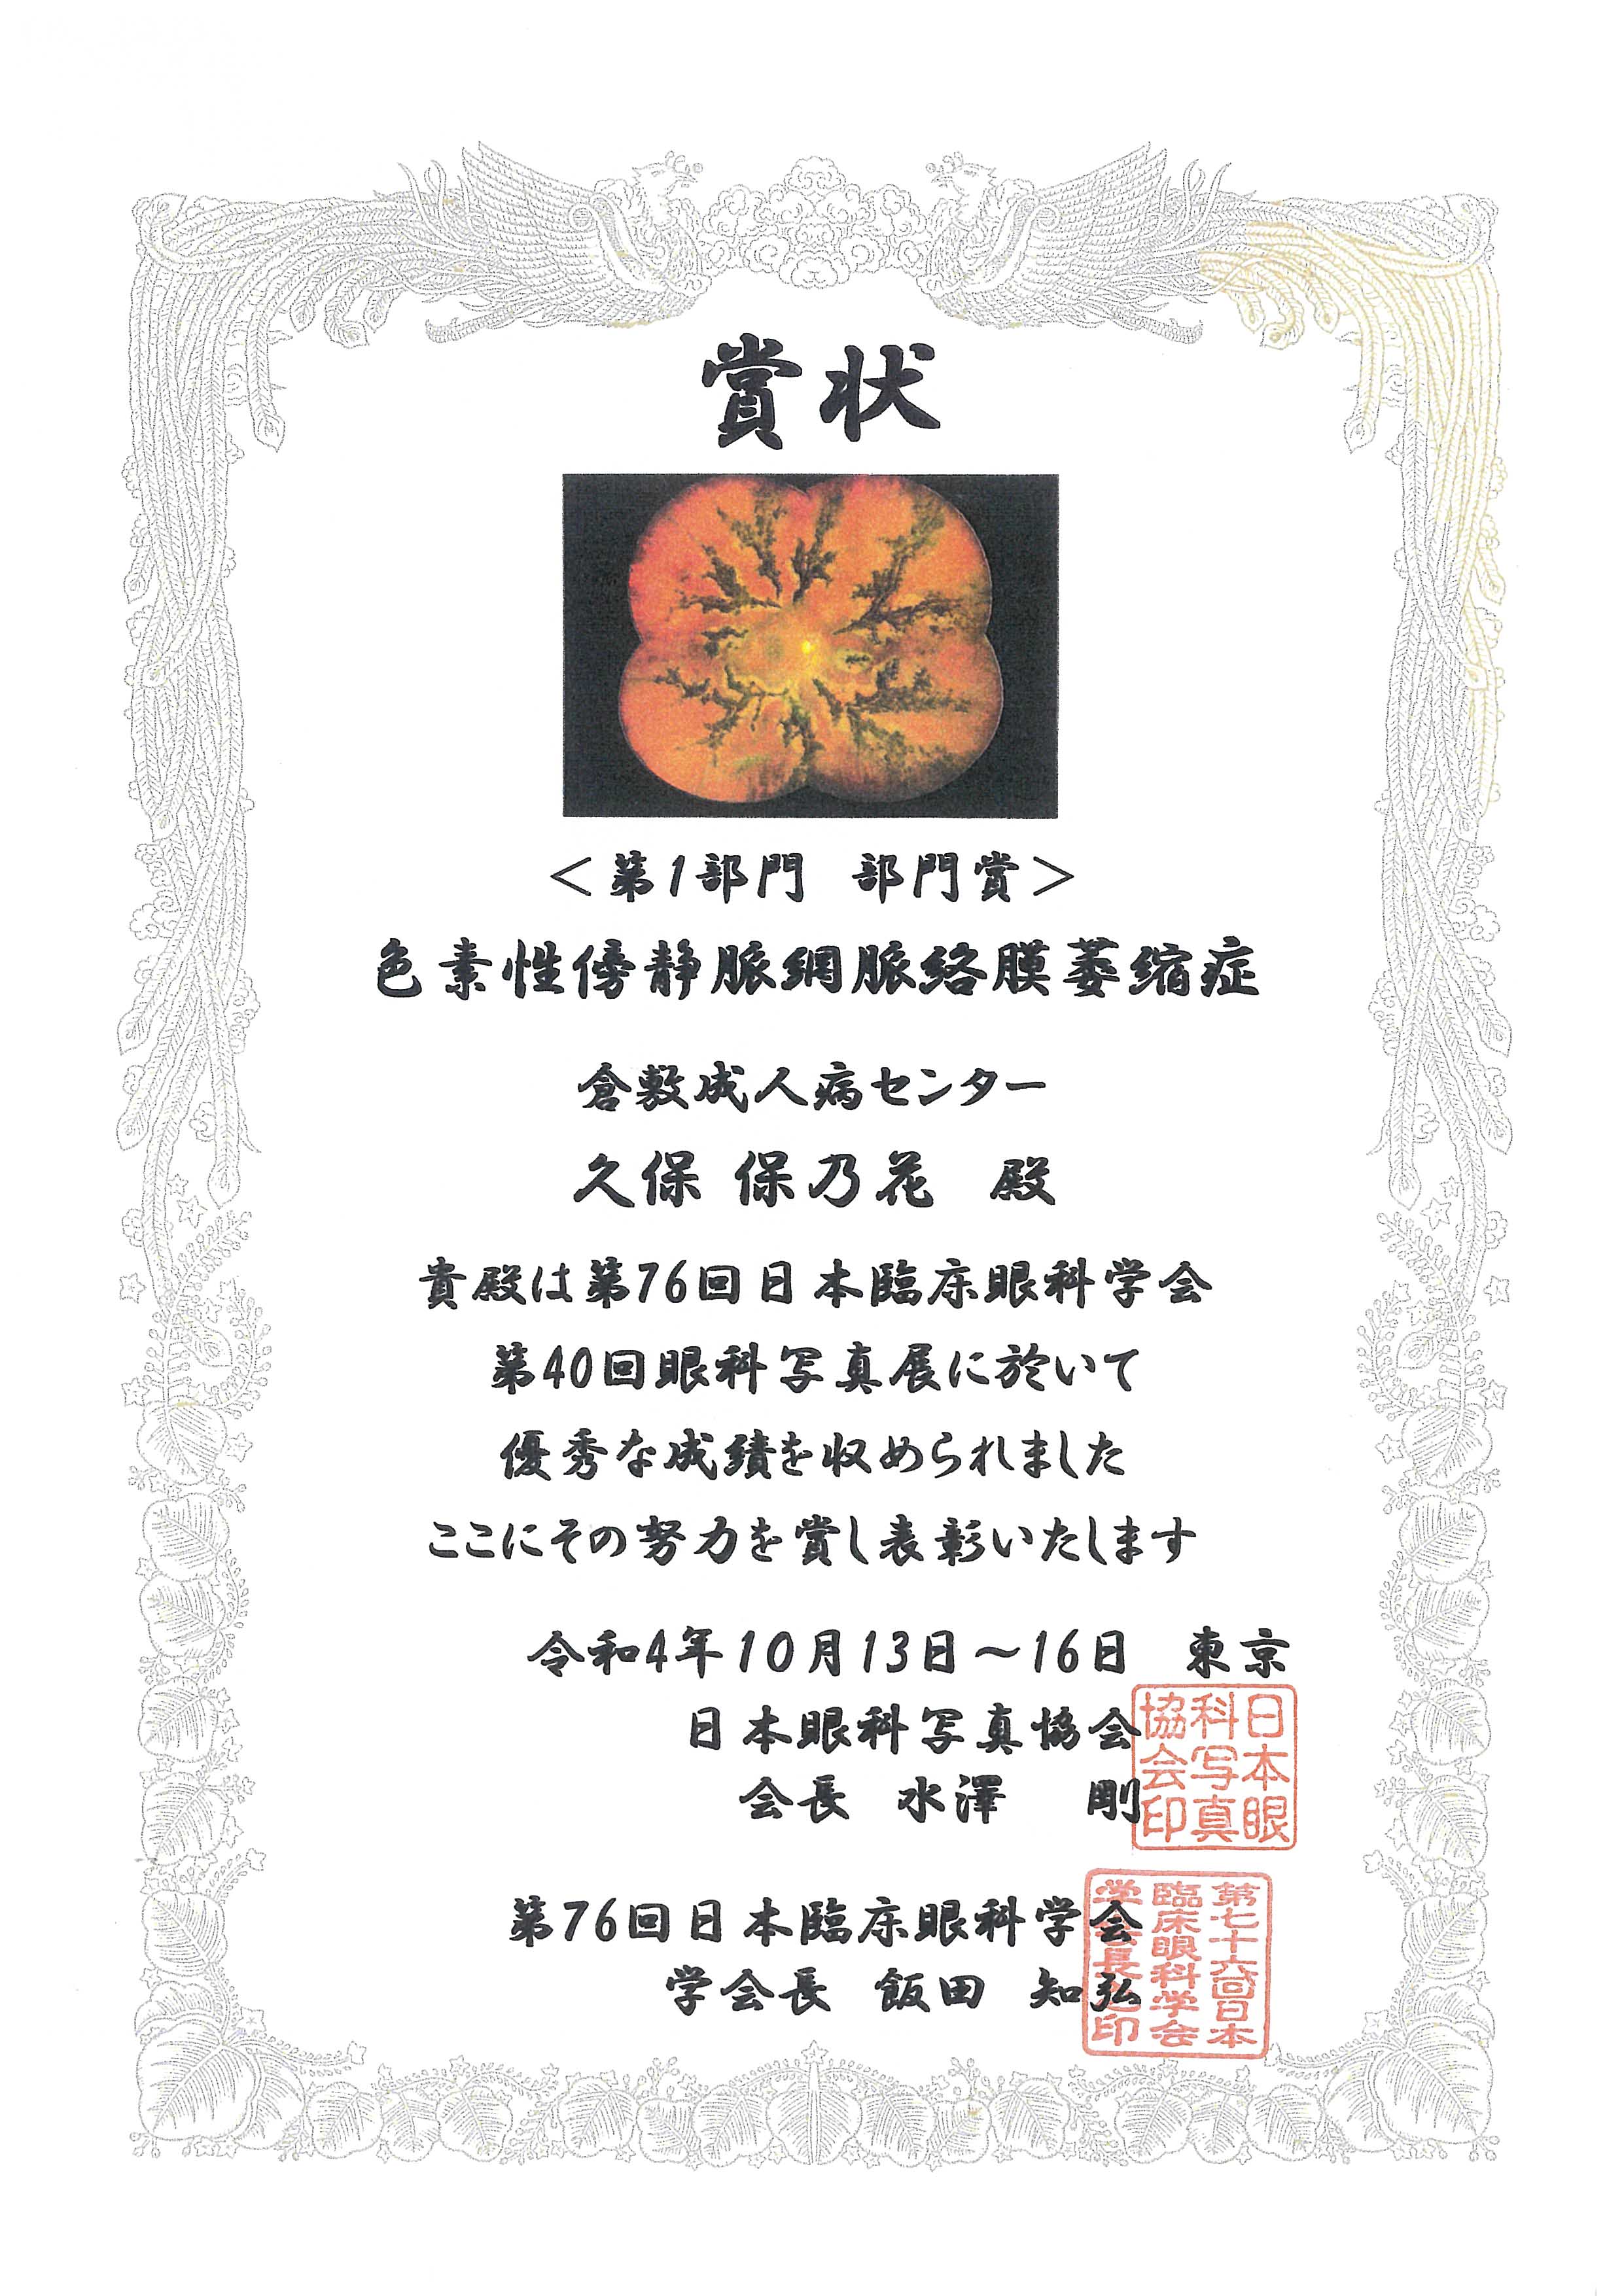 賞状
＜第1部門 部門賞＞
色素性傍静脈網脈絡膜萎縮症
倉敷成人病センター
久保 保乃花 殿
貴殿は第76回日本臨床眼科学会
第40回眼科写真展に於いて
優秀な成績を収められました
ここにその努力を賞し表彰いたします
令和4年10月13日～16日 東京
日本眼科写真協会
会長 水澤 剛
日本眼科写真協会印
第76回日本臨床眼科学会
学会長 飯田 知弘
第七十六回日本臨床眼科学会学会長之印